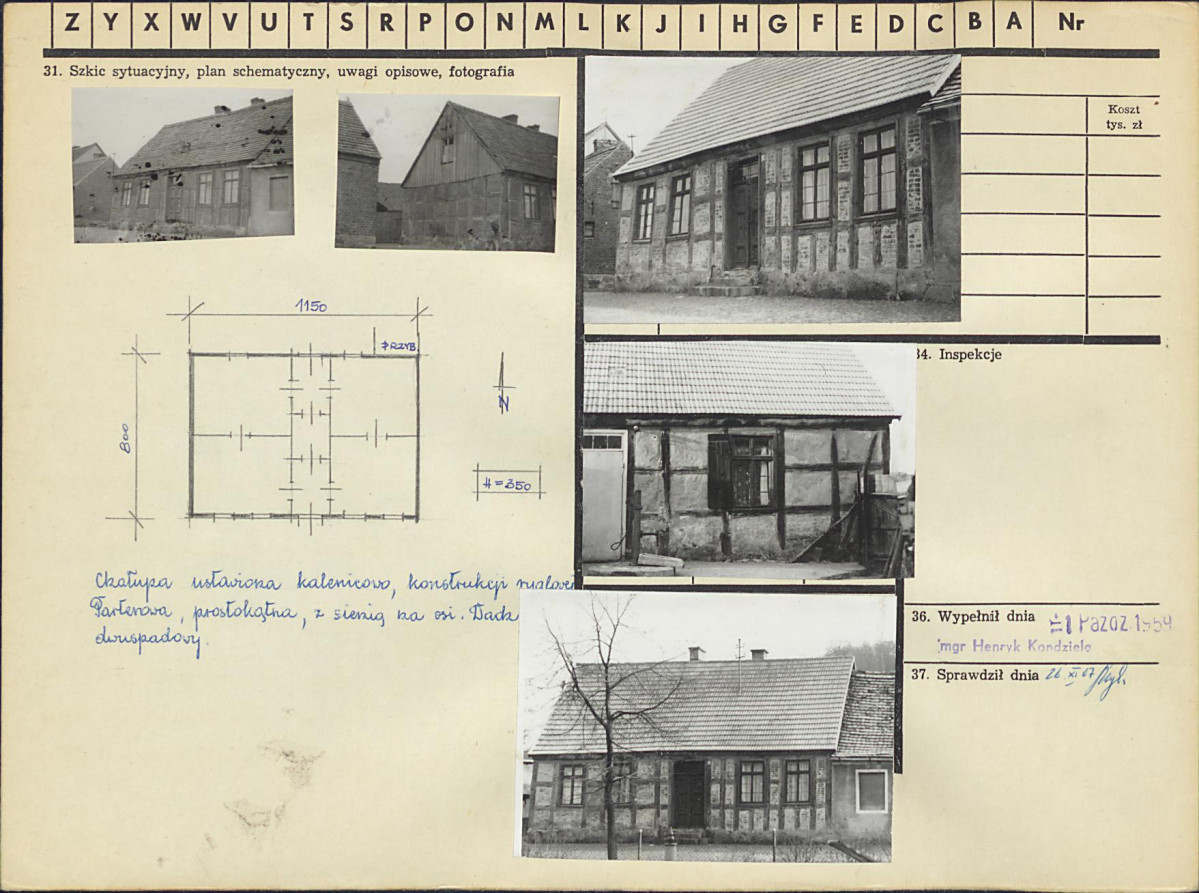 Z Y X W V U T S R P O N M L K J I H G F E D C B A Nr
31. Szkic sytuacyjny, plan schematyczny, uwagi opisowe, fotografia
Koszt
tys. zł
1150
PRZYB.
800
N
H = 350
34. Inspekcje
Chałupa ustawiona kalenicowo, konstrukcji
Parterowa, prostokątna, z sienią na osi. Dach
dwuspadowy.
36. Wypełnił dnia 1 PAŹDZ. 1959
mgr Henryk Kondziela
37. Sprawdził dnia